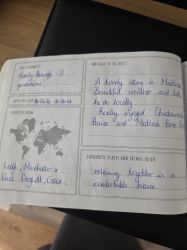 GUEST NAME(S)
Family
DATES OF STAY
TRAVELED FROM
Leigh, Manchester &
West
MESSAGE TO THE HOST
A lovely stay in Matlock
Beautiful weather and lots
to do locally.
Really enjoyed Chatsworth
House and Matlock Farm
FAVOURITE PLACES AND THINGS TO DO
relaxing together in a
comfortable house.